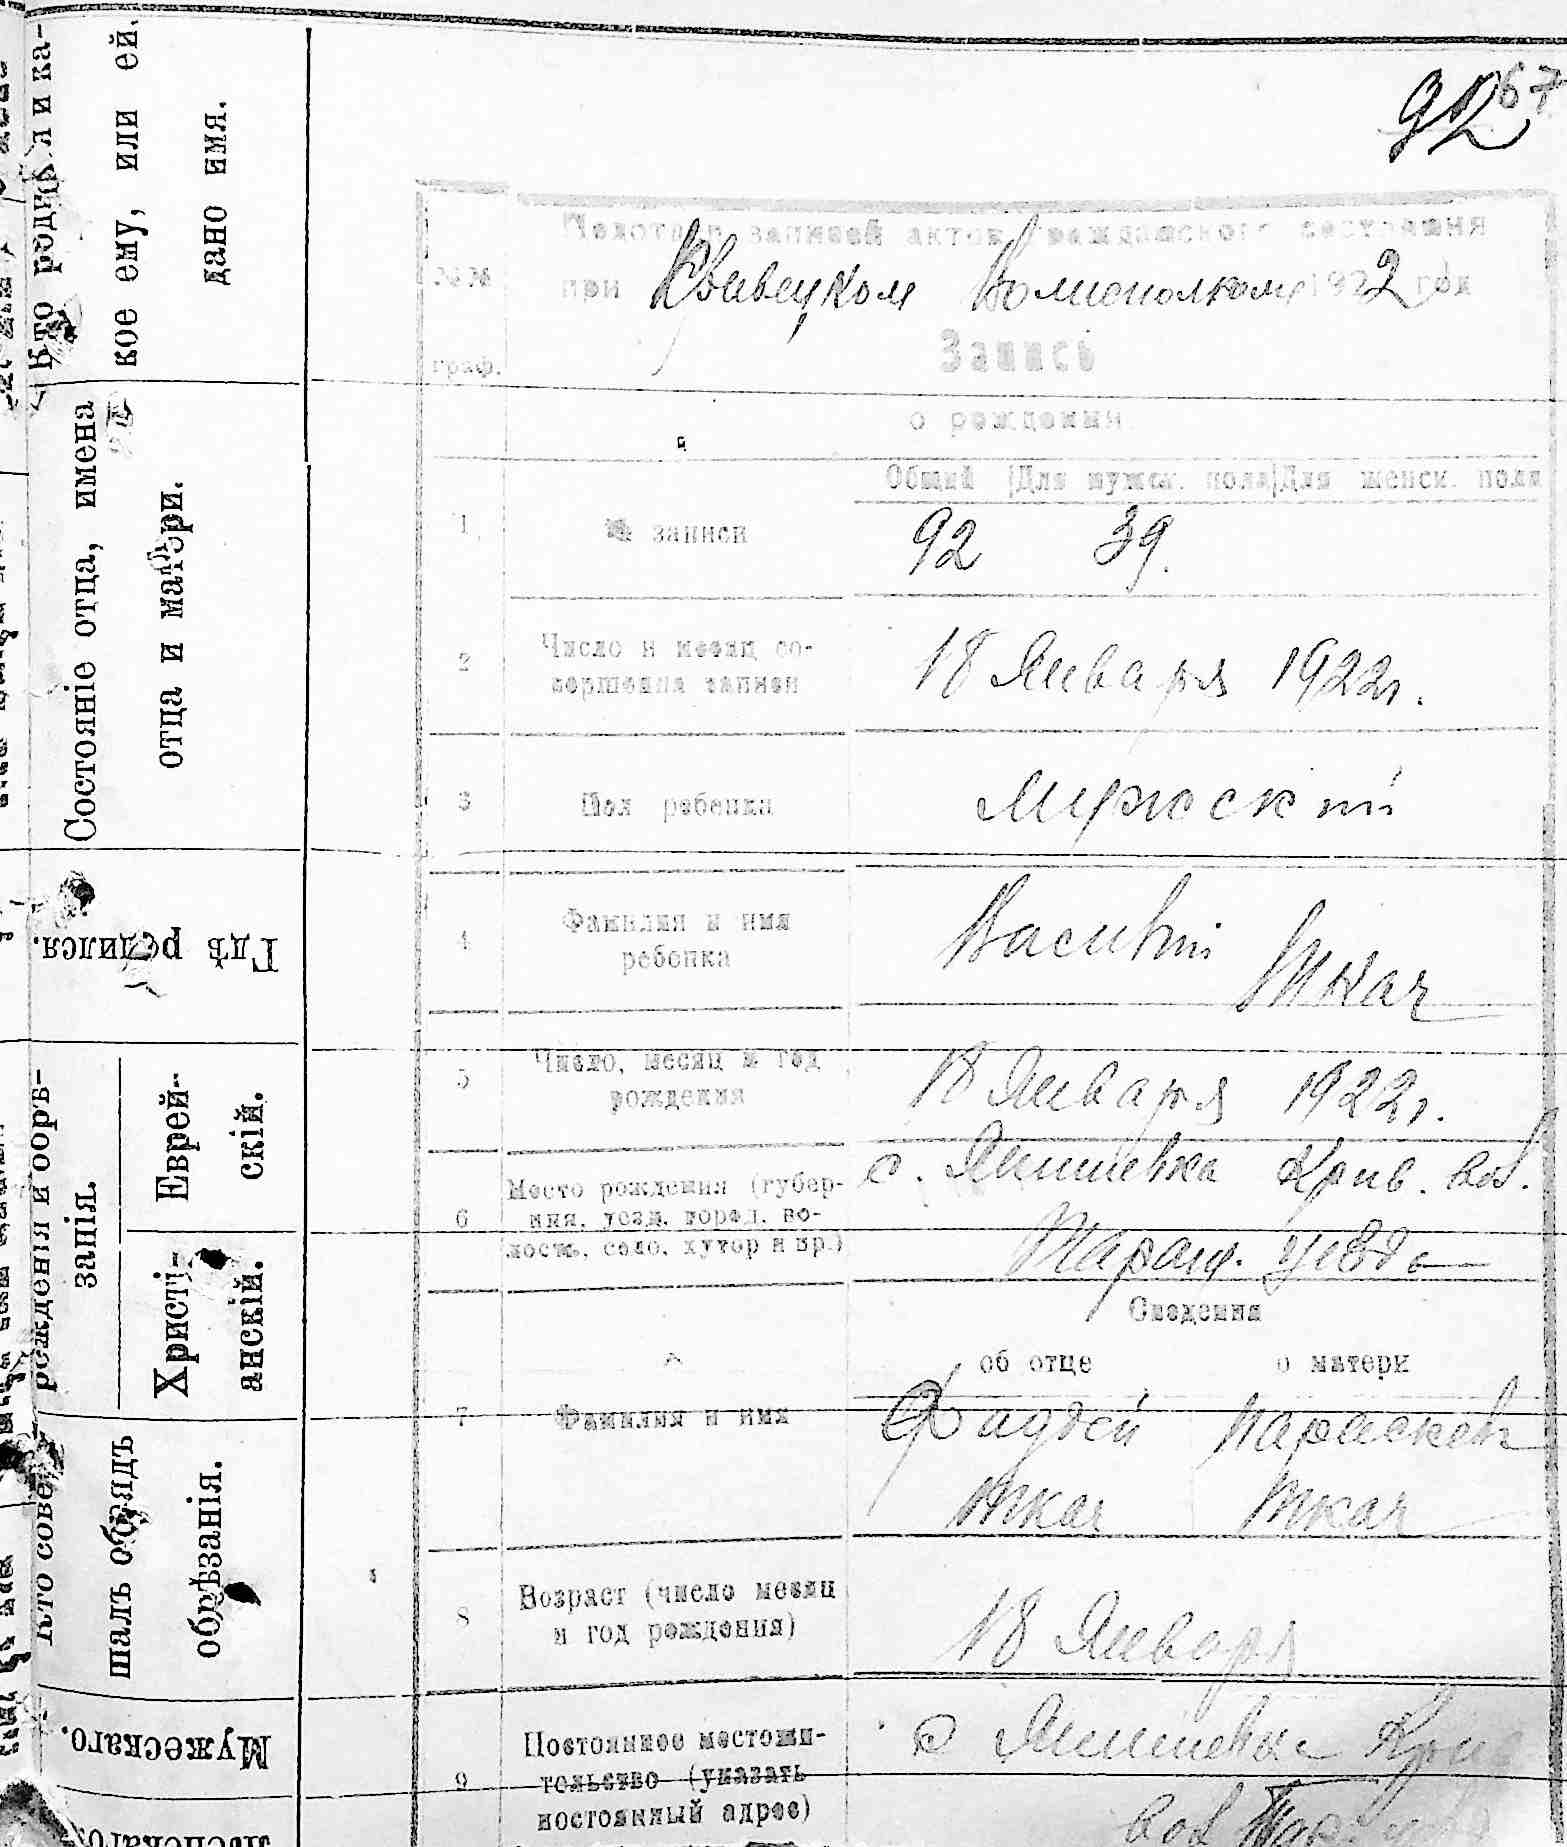 Кто родился и ка-
кое ему, или ей
дано имя.
Состоянiе отца, имена
отца и матери.
Гдѣ родился.
рожденiя и обрѣ-
занiя.
Еврей-
скiй.
Христi-
анскiй.
Кто совер
шалъ обрядъ
обрѣзанiя.
Мужескаго.
92 67
записей актов гражданского состояния
№№ при Кривецком Волисполкоме 1922 год
Запись
граф.
о рождении
Общий Для мужск. пола Для женск. пола
1 № записи 92 39.
2 Число и месяц со-
вершения записи 18 Января 1922г.
3 Пол ребенка Мужеский
4 Фамилия и имя
ребенка Василий Ткач
5 Число, месяц и год
рождения 18 Января 1922г.
6 Место рождения (губер-
ния, уезд, город, во-
лость, село, хутор и пр.) с. Янишевка Крив. вол.
Таращ. уезда
Сведения
об отце о матери
7 Фамилия и имя Фаддей
Ткач Ткач
8 Возраст (число месяц
и год рождения) 18 Января
9 Постоянное местожи-
тельство (указать
постоянный адрес) с Янишевка Крив
вол